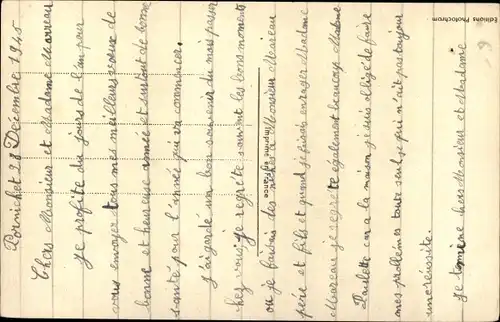 Pornichet 28 Décembre 1945
Chers Monsieur et Madame Moreau
Je profite du jours de l'an pour
vous envoyer tous mes meilleurs vœux de
bonne et heureuse année et surtout de bonne
santé pour l'année qui va commencer.
J'ai garde un bon souvenir du mois passer
chez vous je regrete souvent les bons moments
ou je faisais des niches a Monsieur Moreau
père et fils et quand je faisais enrager Madame
Moreau je regrete également beaucoup Madame
Paulette car a la maison je suis oblige de faire
mes problemes toute seul se qui n'ait pas toujour
une réussite.
je termine chers Monsieur et Madame
Imprimé en France
Editions Photochrom